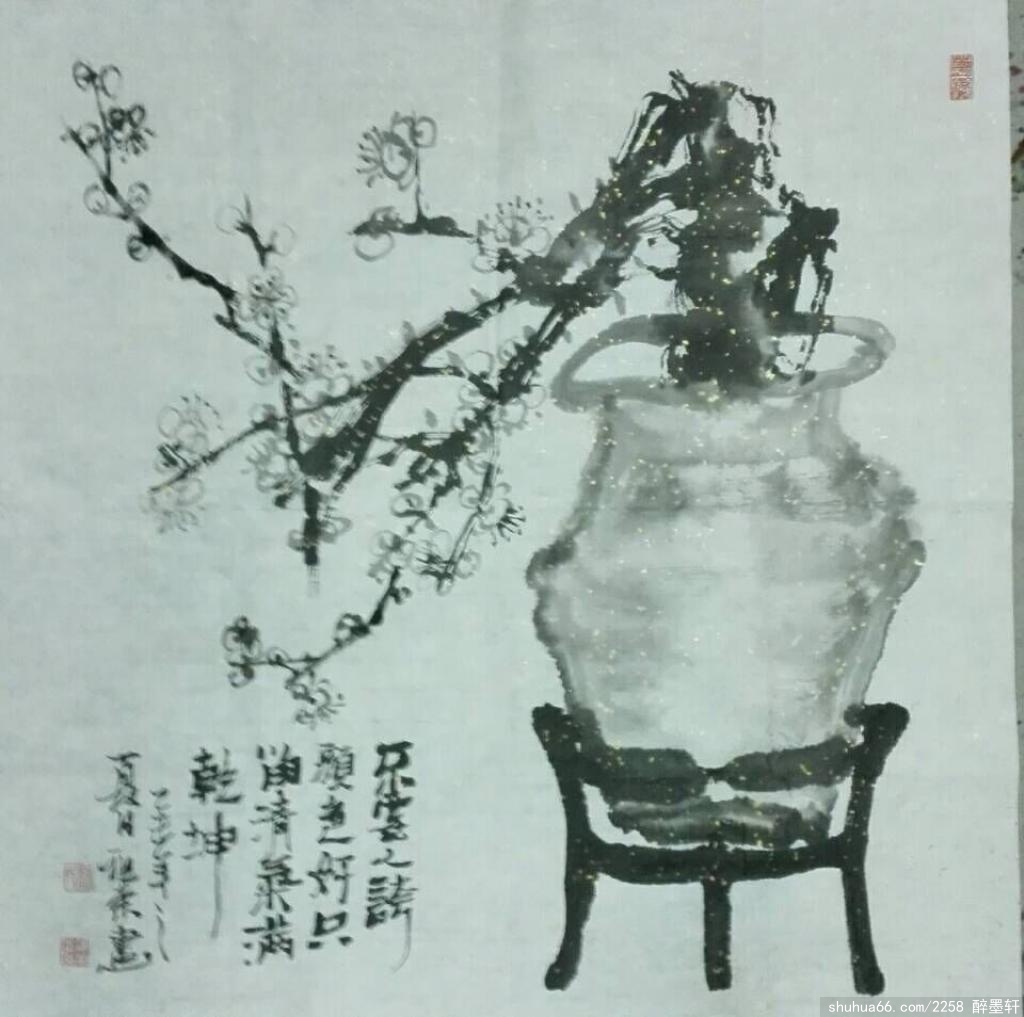 不要人誇
顏色好只
留清氣滿
乾坤
乙未年之
夏日 畫
shuhua66.com/2258 醉墨轩